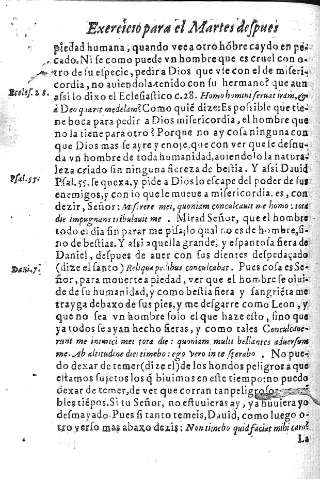 Exercicio para el Martes despues
piedad humana, quando vee a otro hõbre caydo en pe-
cado. Ni se como puede vn hombre que es cruel con o-
tro de su especie, pedir a Dios que vse con el de miseri-
cordia, no auiendola tenido con su hermano? que aun
Ecles. 28.
assi lo dixo el Eclesiastico c.28. Homo homini seruat iram, &
à Deo quærit medelam? Como quiẽ dize: Es possible que tie-
ne boca para pedir a Dios misericordia, el hombre que
no la tiene para otro? Porque no ay cosa ninguna con
que Dios mas se ayre y enoje, que con ver que se desnu-
da vn hombre de toda humanidad, auiendolo la natura-
leza criado sin ninguna fiereza de bestia. Y assi Dauid
Psal. 55.
Psal. 55. se quexa, y pide a Dios lo escape del poder de sus
enemigos, y con lo que le mueue a misericordia, es, con
dezir, Señor: Miserere mei, quoniam conculcauit me homo: tota
die impugnans tribulauit me. Mirad Señor, que el hombre
todo el dia sin parar me pisa; lo qual no es de hombre, si-
no de bestias. Y assi aquella grande, y espantosa fiera de
Dani. 7.
Daniel, despues de auer con sus dientes despedaçado
(dize el santo) Reliqua pedibus conculcabat. Pues cosa es Se-
ñor, para mouerte a piedad, ver que el hombre se olui-
de de su humanidad, y como bestia fiera y sangriẽta me
trayga debaxo de sus pies, y me desgarre como Leon, y
que no sea vn hombre solo el que haze esto, sino que
ya todos se ayan hecho fieras, y como tales Conculcaue-
runt me inimici mei tota die: quoniam multi bellantes aduersum
me. Ab altitudine diei timebo: ego vero in te sperabo. No pue-
do dexar de temer (dize el) de los hondos peligros a que
estamos sujetos los q̃ biuimos en este tiempo: no puedo
dexar de temer, de ver que corran tan peligrosos
bles tiẽpos. Si tu Señor, no estuuieras ay, ya huuiera yo
desmayado. Pues si tanto temeis, Dauid, como luego o-
tro verso mas abaxo dezis: Non timebo quid faciat mihi caro?
La